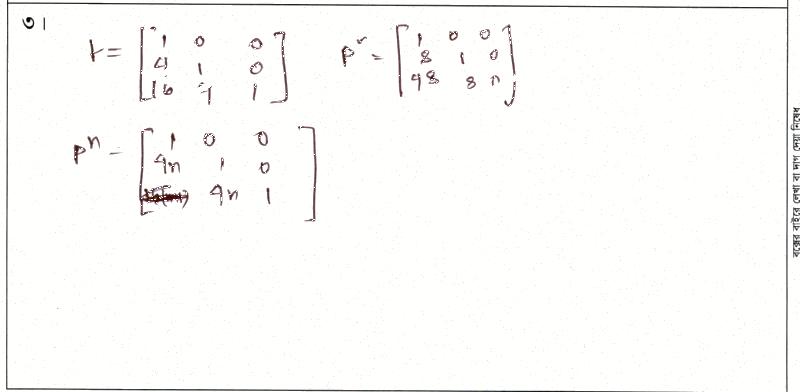 ৩।
P = [1 0 0; 4 1 0; 16 4 1] P² = [1 0 0; 8 1 0; 48 8 1]
Pⁿ = [1 0 0; 4n 1 0; 4n 1]
বক্সের বাইরে লেখা বা দাগ দেয়া নিষেধ